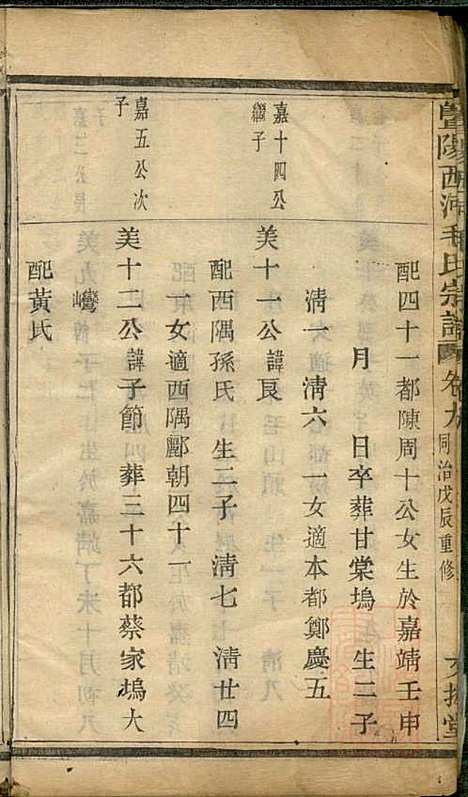 暨陽西河毛氏宗譜 卷九 同治戊辰重修
配四十一都陳周十公女生於嘉靖壬申
月 日卒葬甘棠塢 生二子
淸一 淸六 一女適本都鄭慶五
嘉十四公繼子
美十一公諱良
配西隅孫氏 生二子 淸七 淸廿四
一女適西隅酈朝四十一
嘉五公次子
美十二公諱子節葬三十六都蔡家塢大
巒
配黃氏